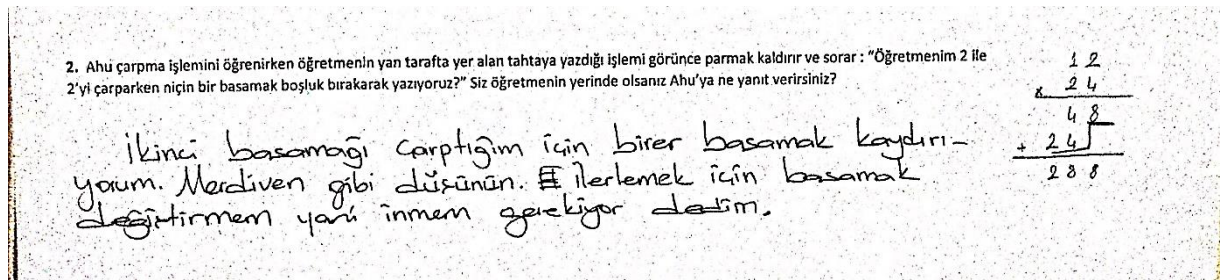 2. Ahu çarpma işlemini öğrenirken öğretmenin yan tarafta yer alan tahtaya yazdığı işlemi görünce parmak kaldırır ve sorar : "Öğretmenim 2 ile
2'yi çarparken niçin bir basamak boşluk bırakarak yazıyoruz?" Siz öğretmenin yerinde olsanız Ahu'ya ne yanıt verirsiniz?
12
x 24
48
+ 24
288
İkinci basamağı çarptığım için birer basamak kaydırı-
yorum. Merdiven gibi düşünün. ilerlemek için basamak
değiştirmem yani inmem gerekiyor derdim.